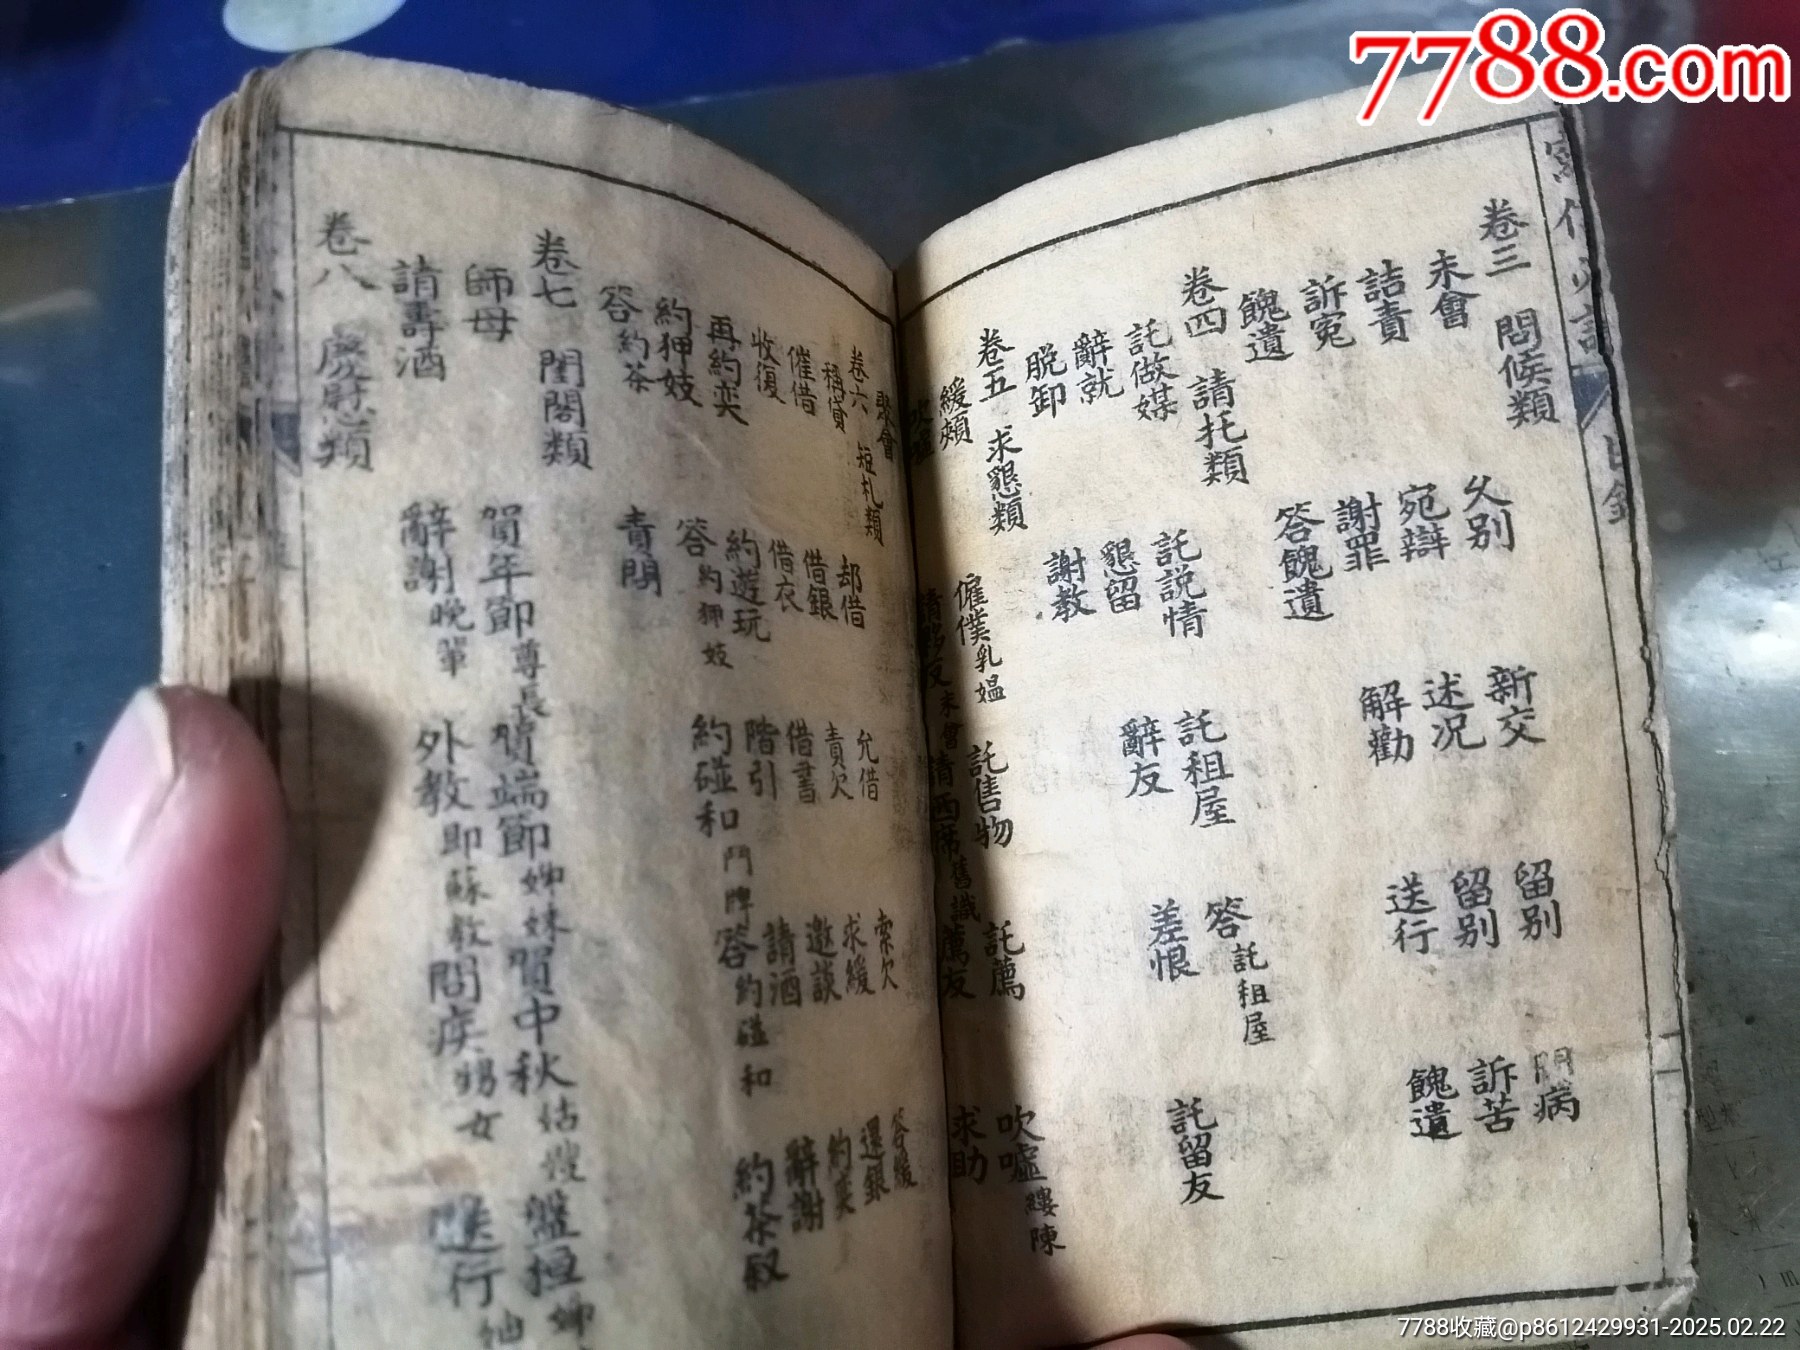 7788.com
卷三 問候類
未會 久別 新交 留別 問病
詰責 宛辯 述况 留別 訴苦
訴寃 謝罪 解勸 送行 餽遺
餽遺 答餽遺
卷四 請托類
託做媒 託説情 託租屋 答託租屋 託留友
辭就 懇留 辭友 差恨
脱卸 謝教
卷五 求懇類
緩頰 僱僕乳媪 託售物 託薦 吹噓縷陳
吹噓 請夥友未會 請西席舊識 薦友 求助
聚會
卷六 短札類
稱貸 却借 允借 索欠 答緩
催借 借銀 責欠 求緩 還銀
收復 借衣 借書 邀談 約奕
再約奕 約遊玩 階引 請酒 辭謝
約狎妓 答約狎妓 約碰和鬥牌 答約碰和 約茶叙
答約茶 責閙
卷七 閨閣類
師母 賀年節尊長 賀端節姊妹 賀中秋姑嫂 盤桓
請壽酒 辭謝晚輩 外教即蘇教 問疾甥女 送行
卷八 慶慰類
7788收藏@p8612429931-2025.02.22